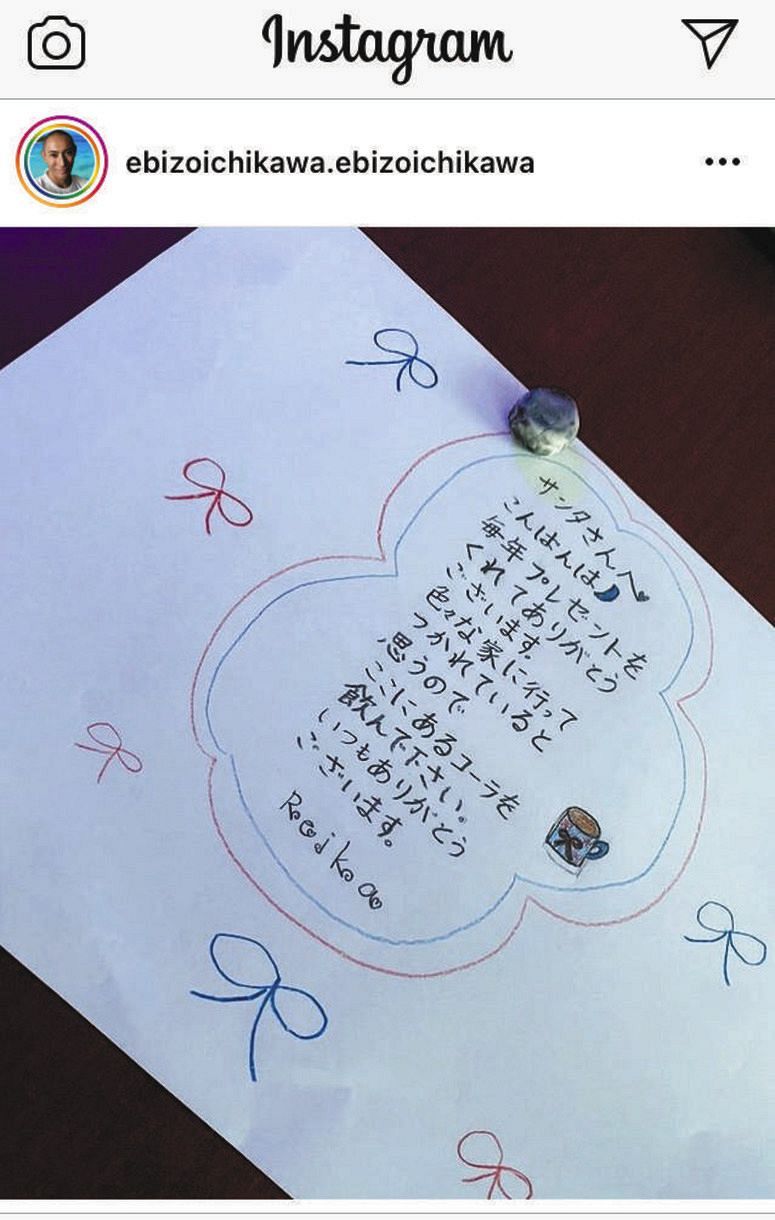 Instagram
ebizoichikawa.ebizoichikawa
サンタさんへ
こんばんは
毎年プレゼントを
くれてありがとう
ございます。
色々な家に行って
つかれていると
思うので
ここにあるコーラを
飲んで下さい。
いつもありがとう
ございます。
Reika